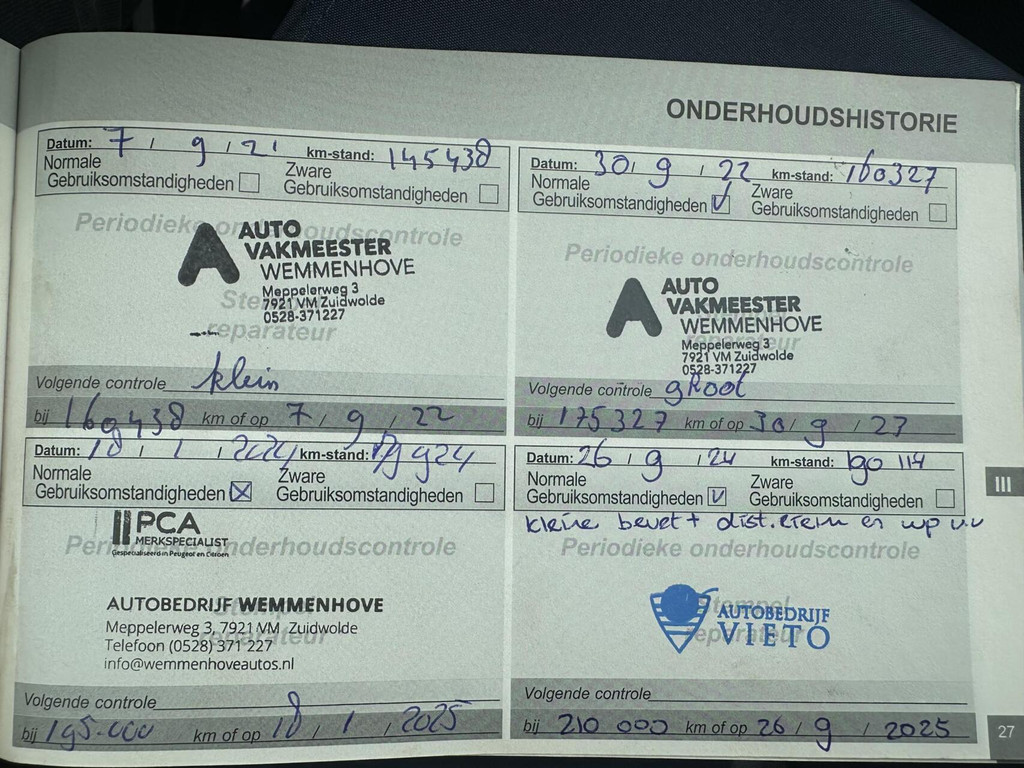 ONDERHOUDSHISTORIE
Datum: 7 / 9 / 21 km-stand: 145438
Normale Gebruiksomstandigheden
Zware Gebruiksomstandigheden
Periodieke onderhoudscontrole
AUTO
VAKMEESTER
WEMMENHOVE
Meppelerweg 3
7921 VM Zuidwolde
0528-371227
Stempel
reparateur
Volgende controle klein
bij 160438 km of op 7 / 9 / 22
Datum: 30 / 9 / 22 km-stand: 160327
Normale Gebruiksomstandigheden
Zware Gebruiksomstandigheden
Periodieke onderhoudscontrole
AUTO
VAKMEESTER
WEMMENHOVE
Meppelerweg 3
7921 VM Zuidwolde
0528-371227
Stempel
reparateur
Volgende controle gRoot
bij 175327 km of op 30 / 9 / 23
Datum: 18 / 1 / 2024 km-stand:
Normale Gebruiksomstandigheden
Zware Gebruiksomstandigheden
Periodieke onderhoudscontrole
PCA
MERKSPECIALIST
Gespecialiseerd in Peugeot en Citroën
Stempel
reparateur
AUTOBEDRIJF WEMMENHOVE
Meppelerweg 3, 7921 VM Zuidwolde
Telefoon (0528) 371 227
info@wemmenhoveautos.nl
Volgende controle
bij 195.000 km of op 18 / 1 / 2025
Datum: 26 / 9 / 24 km-stand: 190 114
Normale Gebruiksomstandigheden
Zware Gebruiksomstandigheden
kleine beurt + dist.riem en wp v.v
Periodieke onderhoudscontrole
Stempel
reparateur
AUTOBEDRIJF
VIETO
Volgende controle
bij 210 000 km of op 26 / 9 / 2025
III
27